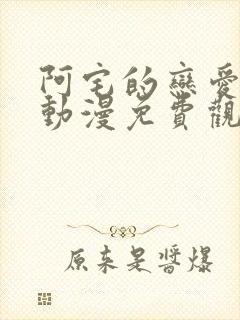 阿宅的戀愛
動漫免費觀
原来是醬爆